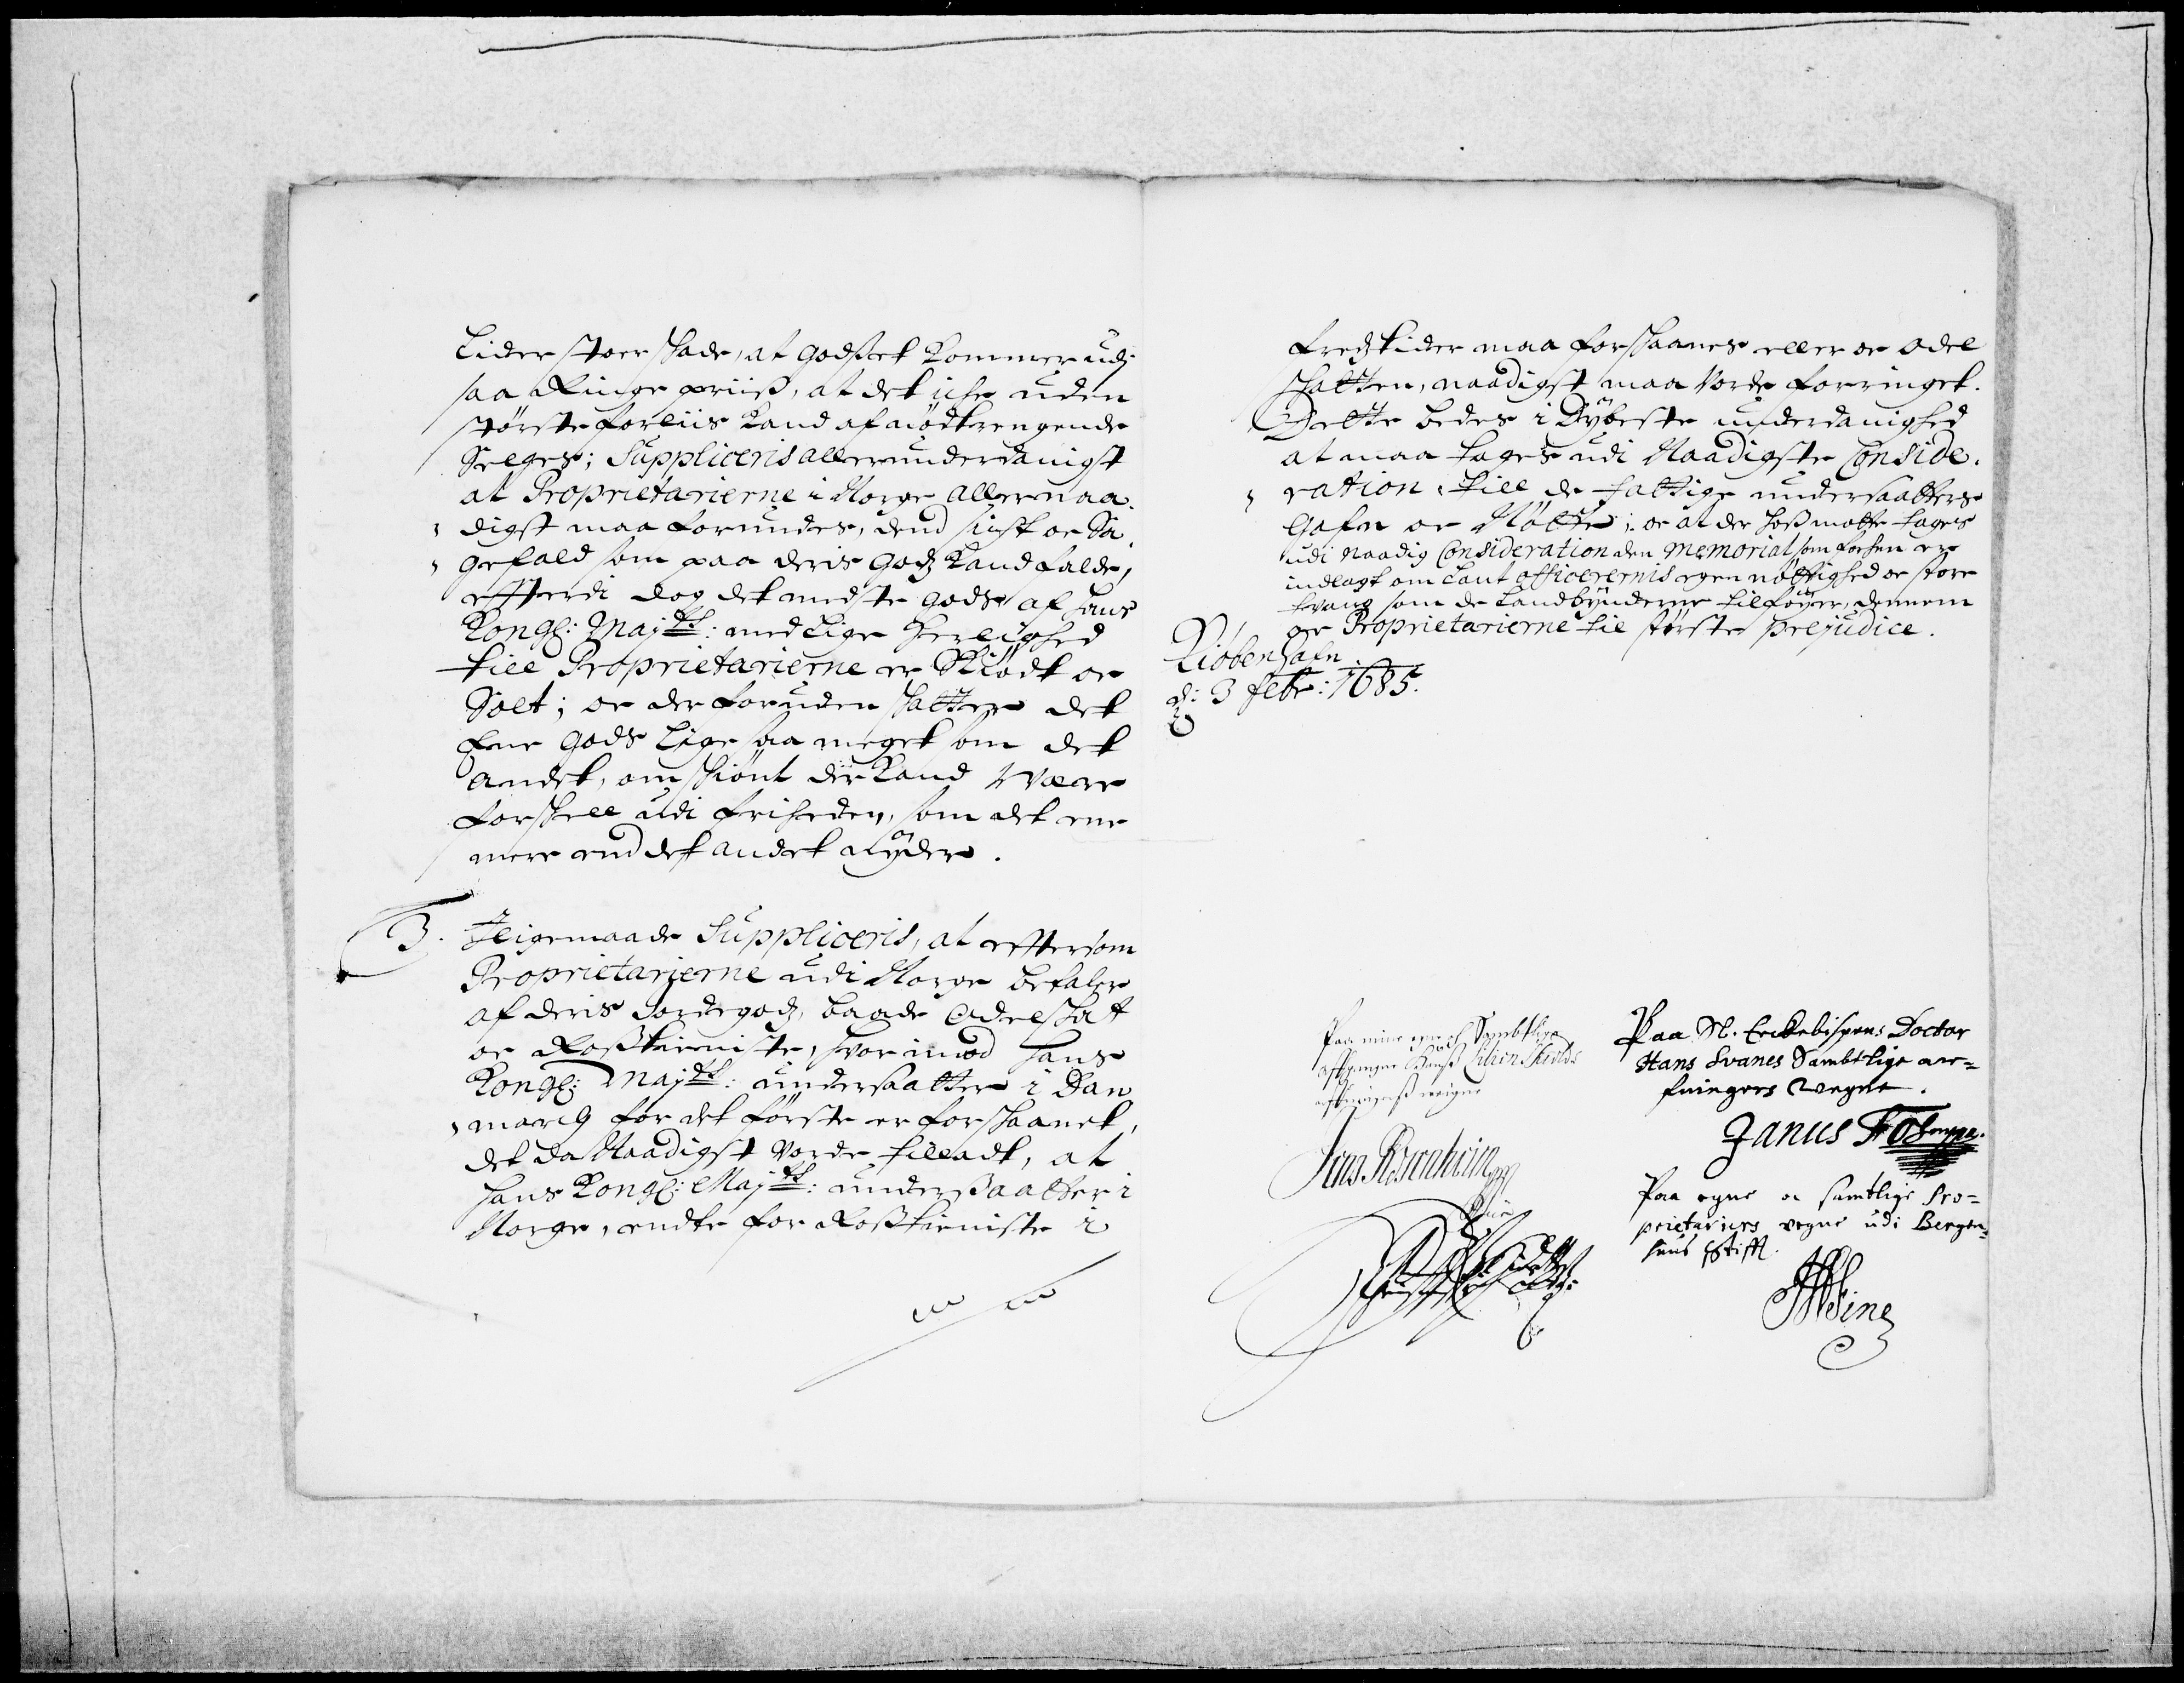 Lider stoer skade, at godset kommer udj
saa Ringe priis, at det iche uden
störste forliis kand af nödtrengende
Selges; Suppliceris allerunderdanigst
at Proprietarierne i Norge allernaa¬
digst maa forundes, dend sicht oc Sa¬
gefald som paa deris godz kand falde,
effterdi dog det meste gods af hans
Kongl: Majtt: med Lige herlighed
till Proprietarierne er Skiödt oc
Solt; oc der foruden skatter det
Ene gods Lige saa meget som det
andet, om skiönt der kand Være
forskell udi friheden, som det ene
mere end det andet nyder.
3. Jligemaade Suppliceris, at efftersom
Proprietarierne udi Norge betaler
af deris Jordegodz, baade Odelskat
oc Rosstieniste, hvorimod hans
Kongl: Majtt: undersaatter i Dan
marck for det förste er forskaanet,
det da Naadigst vorde tilladt, at
hans Kongl: Majtt: undersaatter i
Norge, endte for Rosstieniste i
fredztider maa forskaanes eller oc Odel
skatten, naadigst maa vorde forringet.
Dette bedes i Dybeste underdanighed
at maa tages udi Naadigste Conside¬
ration, till de fattige undersaatters
Gafn oc Nötte; oc at der hos motte tages
udi naadig Consideration den Memorial som forhen er
indlagt om Laut officerernis egen nöttighed oc store
tvang som de Landbynderne tilföyer, dennem
oc Proprietarierne til störste prejudice.
Kiöbenhafn
d: 3 febr: 1685.
Paa mine egne oc Sambtlige
Jens Rosenheim
Paa Sl. Erckebispens Doctor
Hans Svanes Sambtlige ar¬
fvingers vegne.
Janus
Paa egne oc samtlige Pro¬
prietariers vegne udi Bergen¬
huus Stifft.